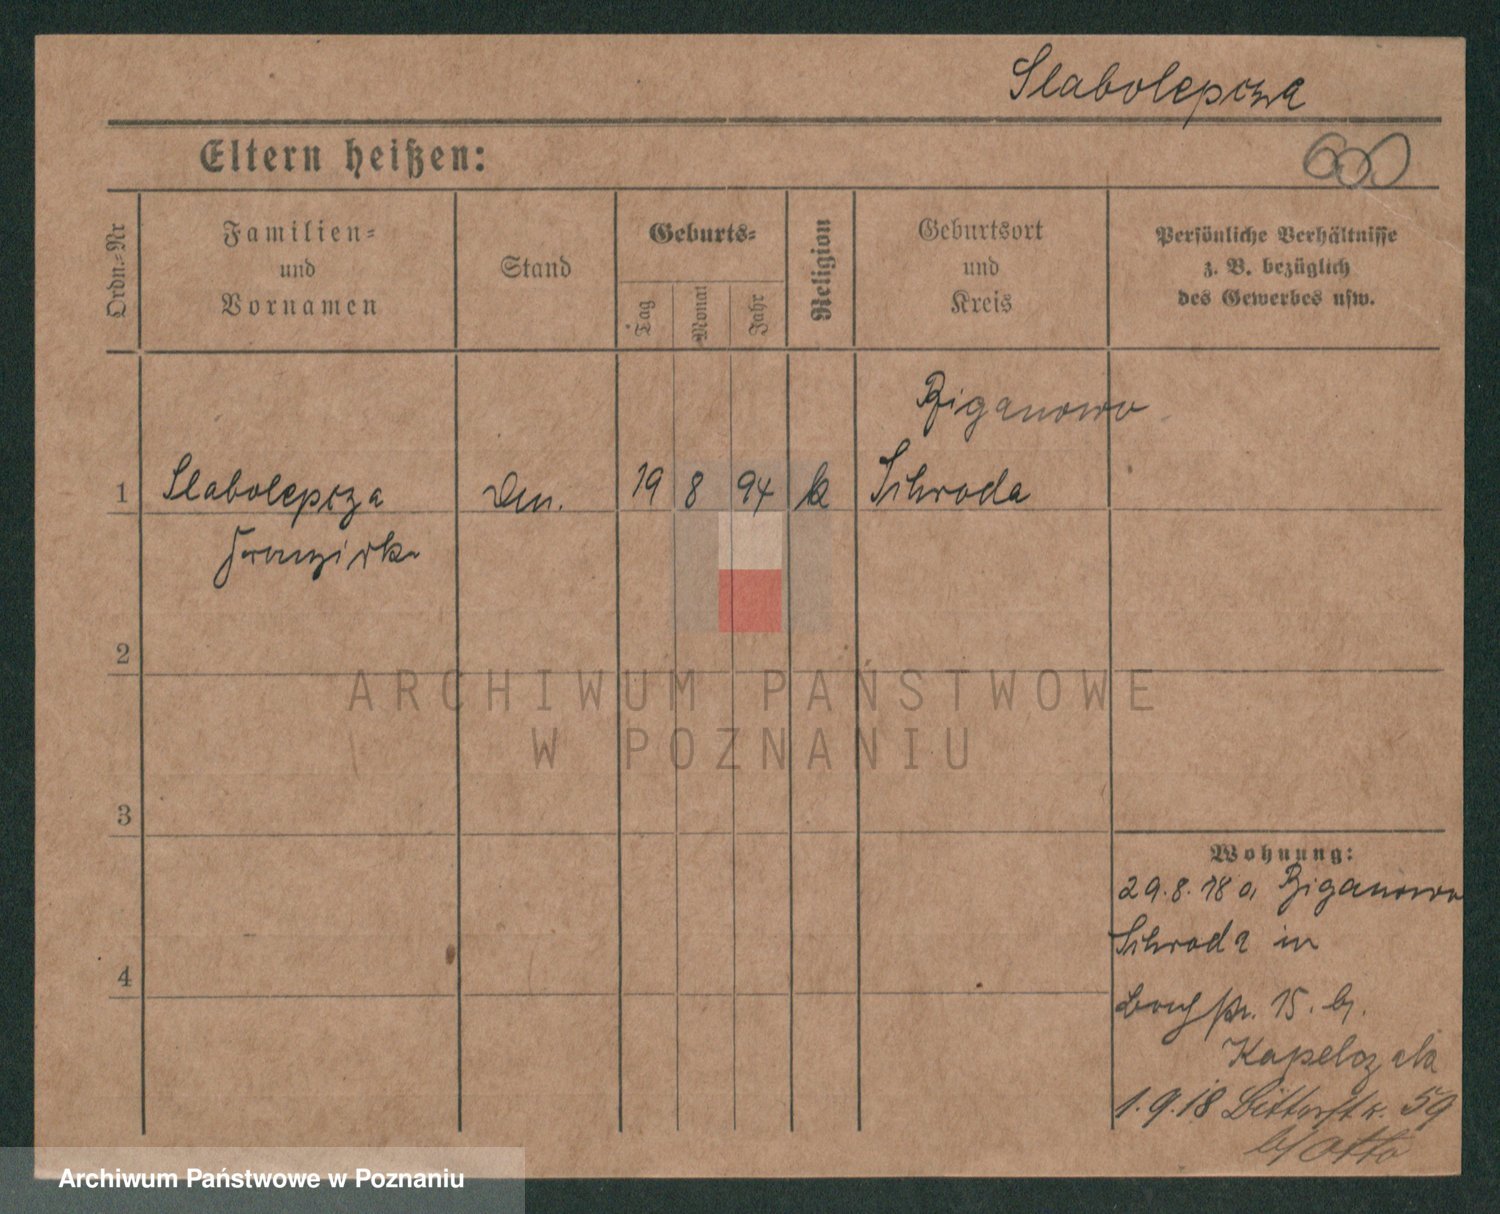 Slabolepsza
600
Eltern heißen:
Ordn.-Nr
Familien-
und
Vornamen
Stand
Geburts-
Tag
Monat
Jahr
Religion
Geburtsort
und
Kreis
Persönliche Verhältnisse
z. B. bezüglich
des Gewerbes usw.
Biganowo
1 Slabolepsza 19 8 94 k Schroda
Franziska
2
ARCHIWUM PAŃSTWOWE
W POZNANIU
3
Wohnung:
29.8.18 a, Biganowo
Schroda in
15. b.
4
1.9.18 59
b/ Otto
Archiwum Państwowe w Poznaniu